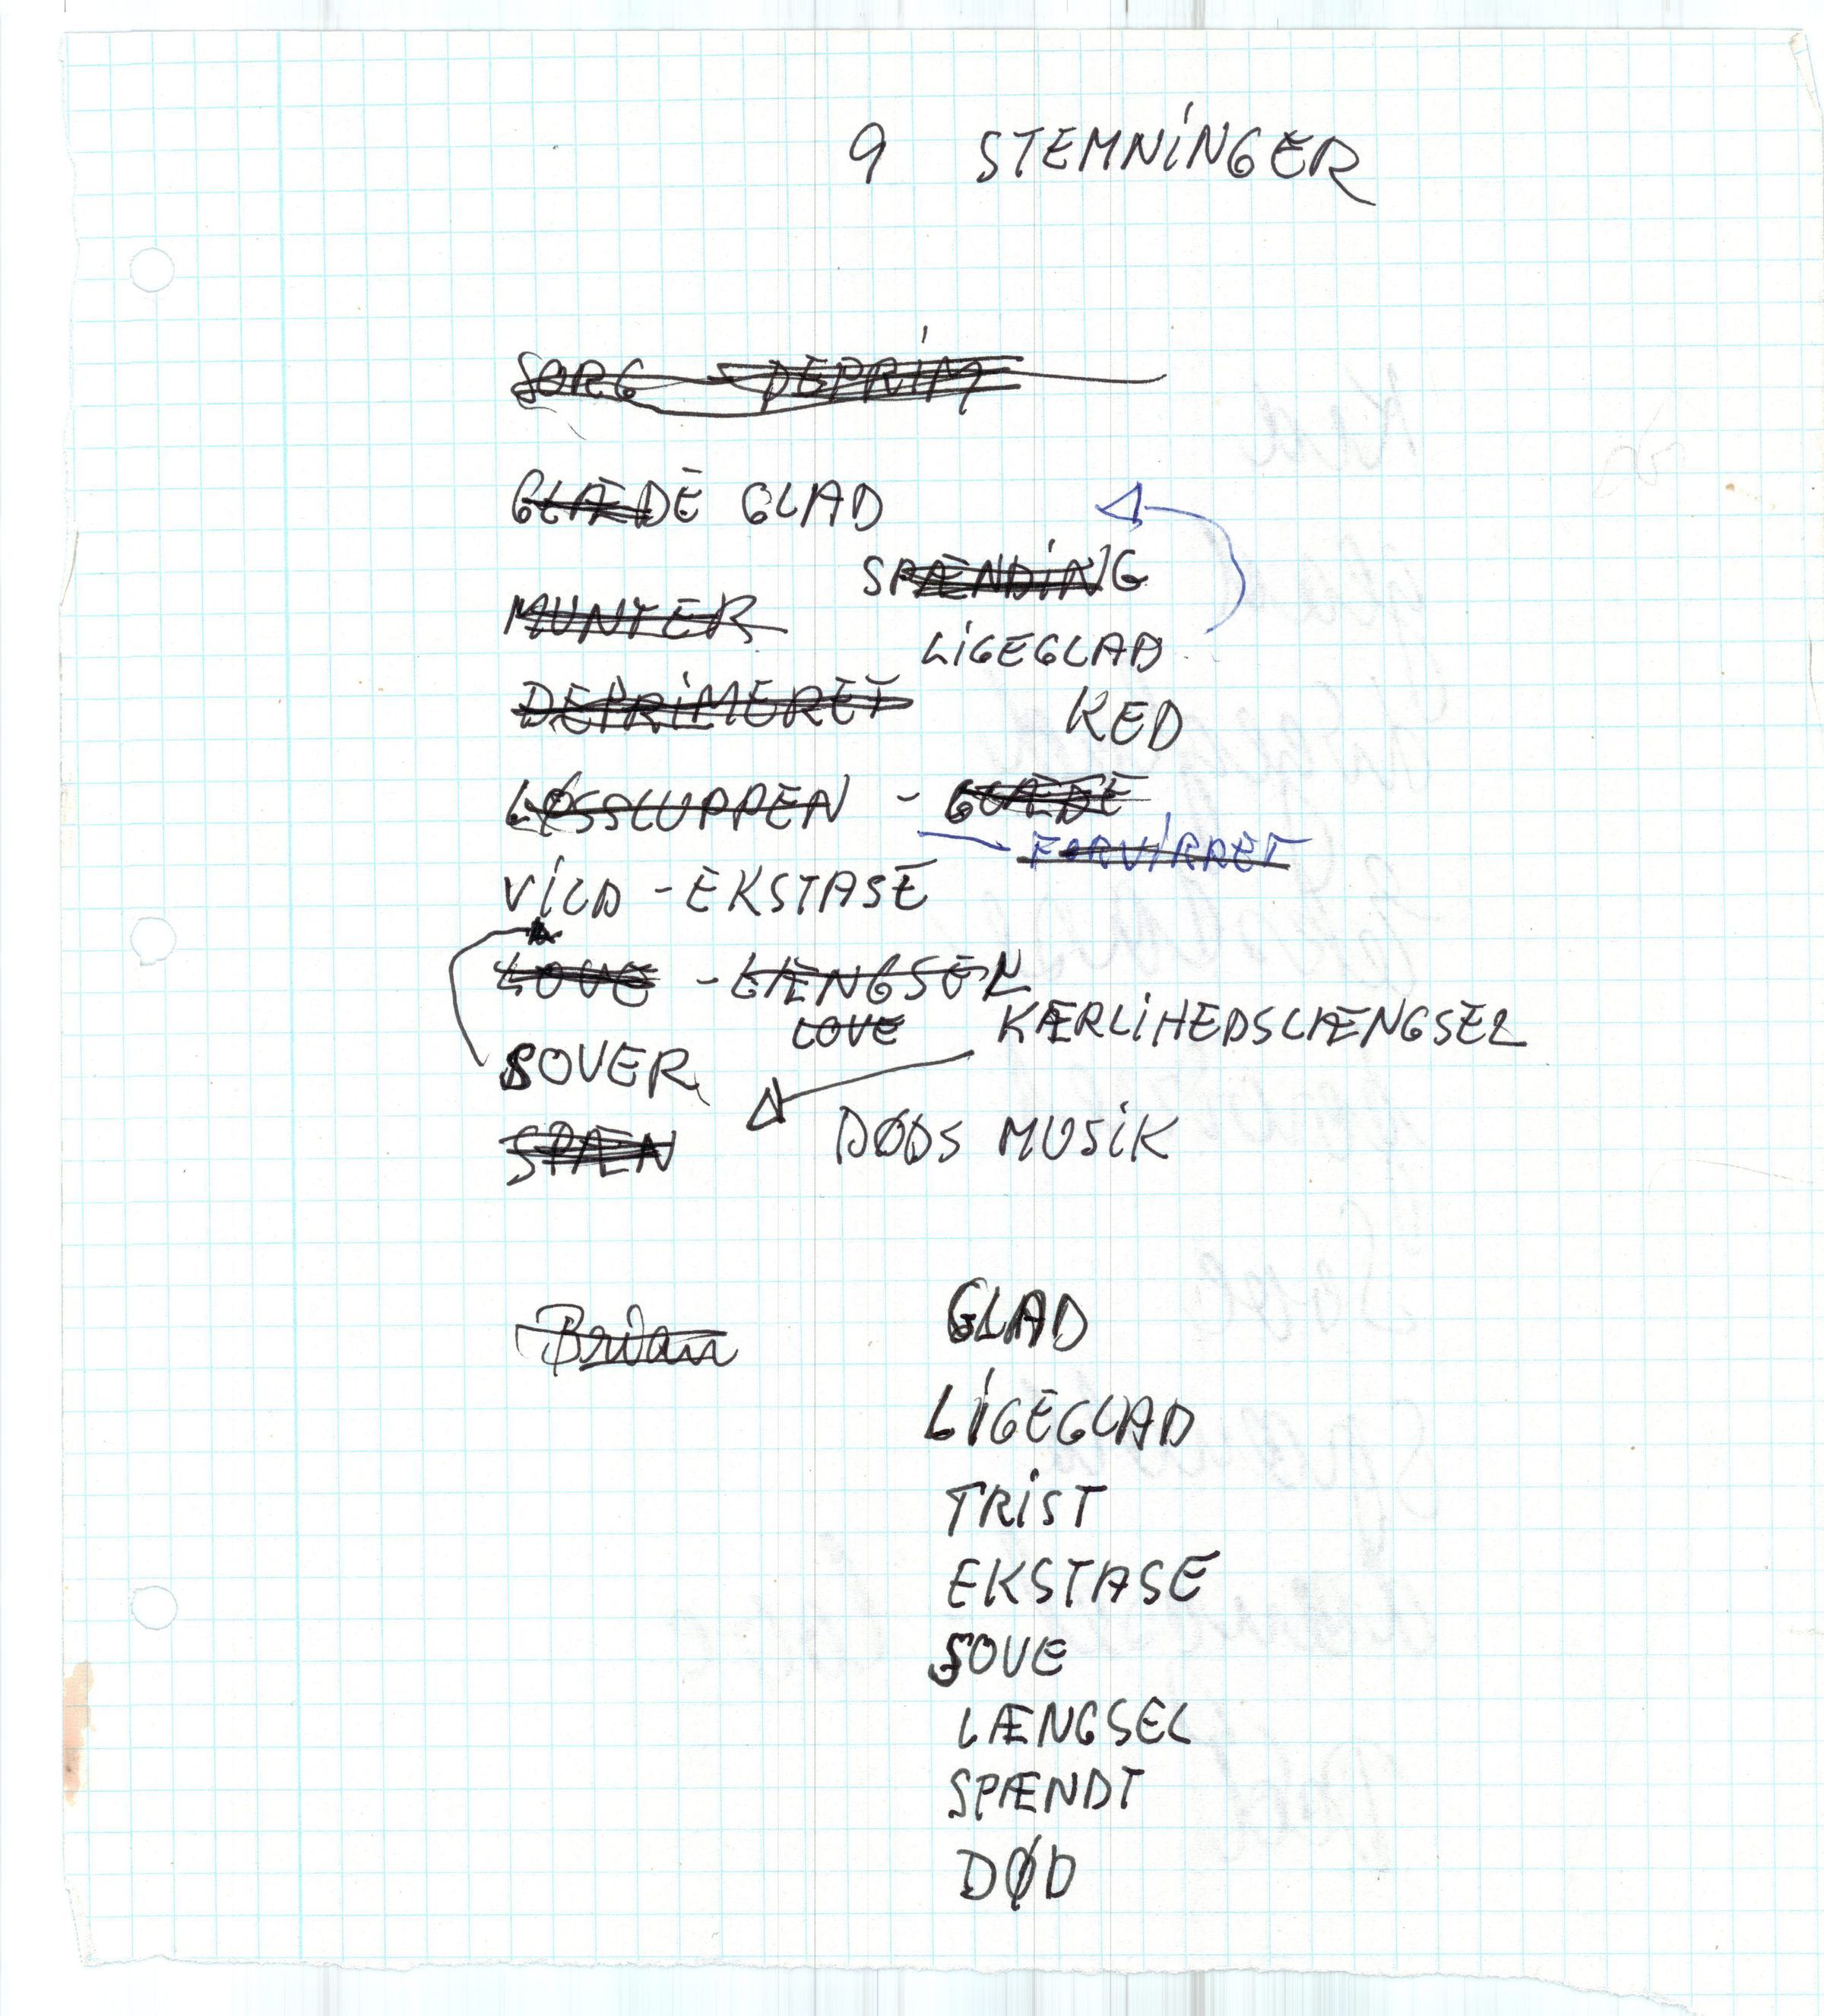 9 STEMNINGER
SORG - DEPRIM
GLÆDE GLAD
SPÆNDING
MUNTER
LIGEGLAD
DEPRIMERET KED
LØSSLUPPEN - GLÆDE
- FORVIRRET
VILD - EKSTASE
LOVE - LÆNGSEL
LOVE KÆRLIHEDSLÆNGSEL
SOVER
SPÆN DØDS MUSIK
Brian GLAD
LIGEGLAD
TRIST
EKSTASE
SOVE
LÆNGSEL
SPÆNDT
DØD